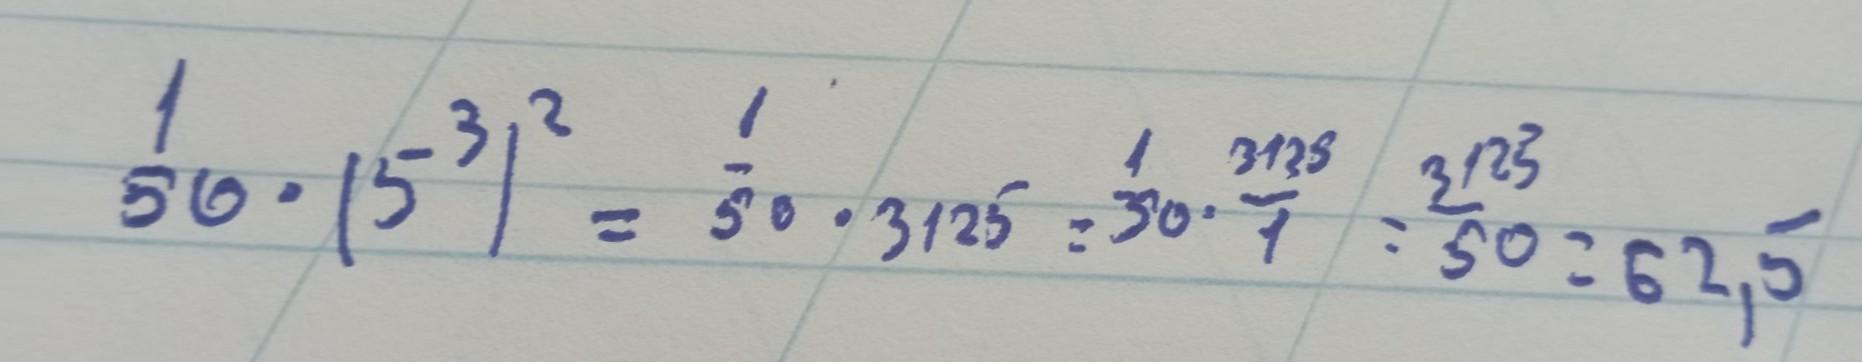 1/50 · (5³)² = 1/50 · 3125 = 1/50 · 3125/1 = 3125/50 = 62,5